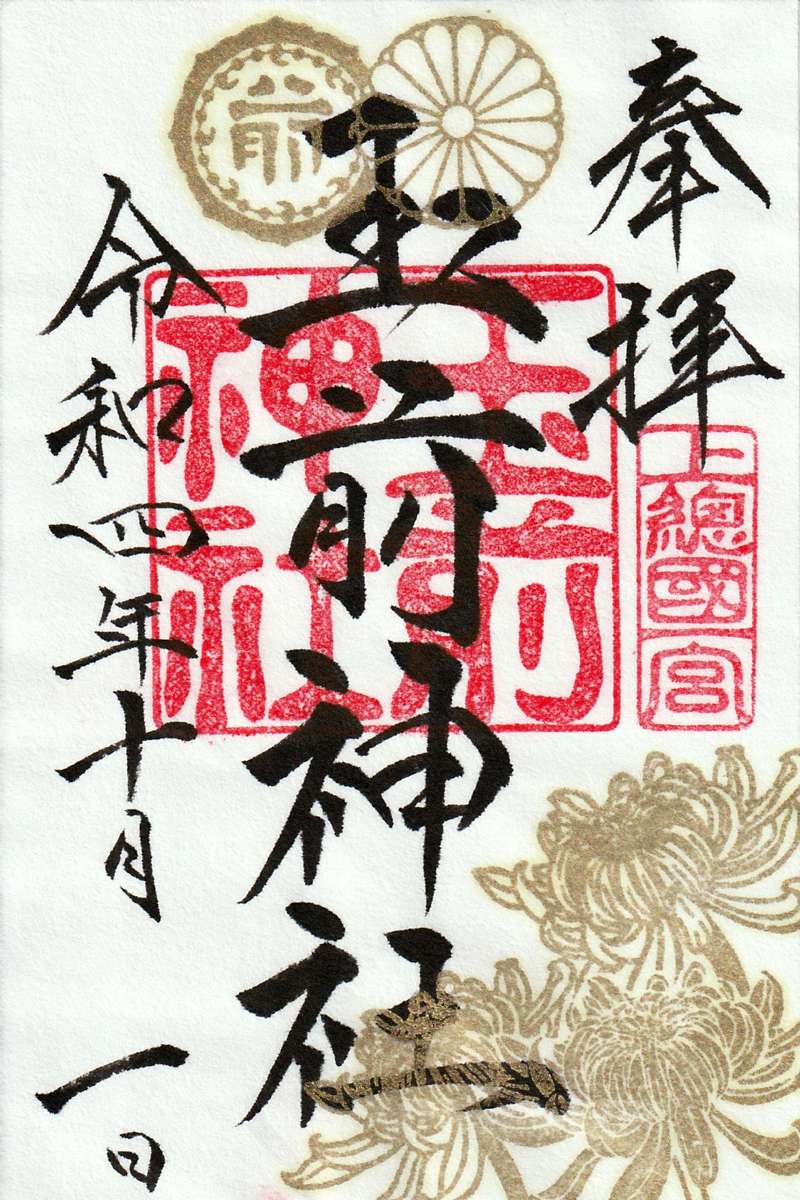 奉拝
上總國宮
玉前神社
玉前神社
前
令和四年十月一日